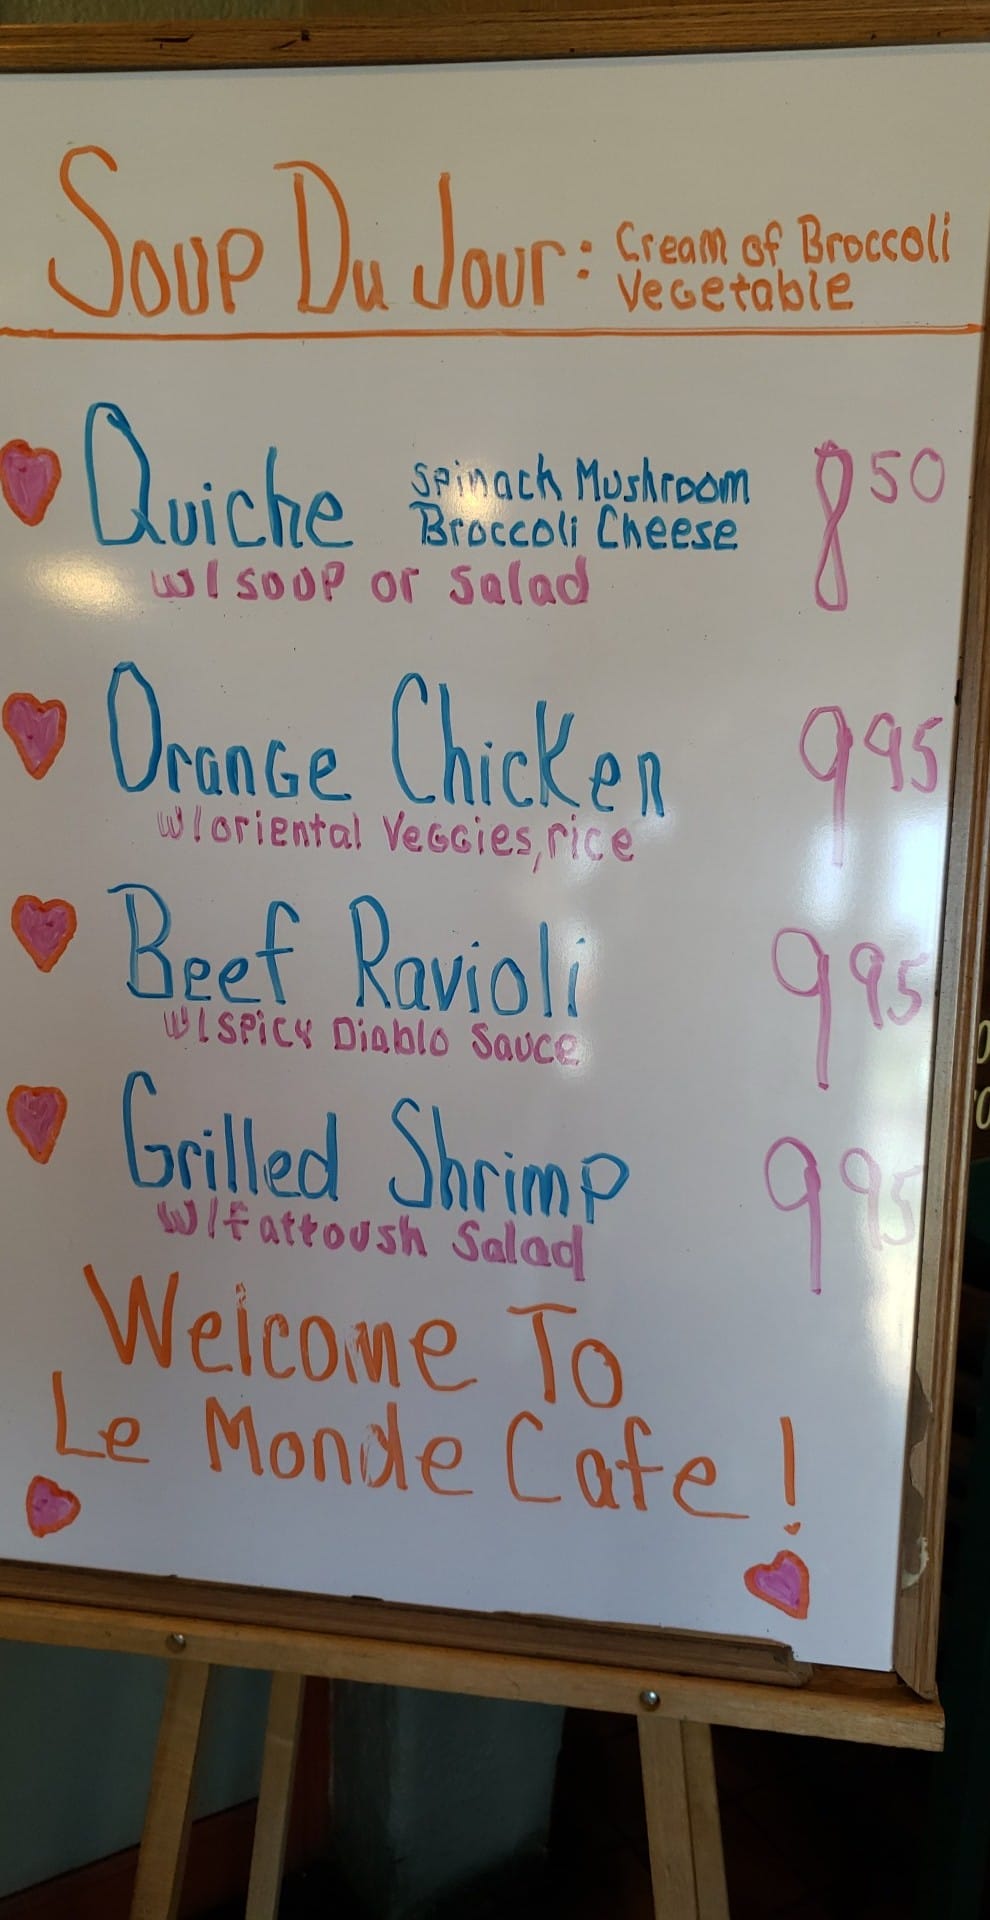 Soup Du Jour: Cream of Broccoli
Vegetable
Quiche Spinach Mushroom 8 50
Broccoli Cheese
w/soup or Salad
Orange Chicken 9 95
w/oriental Veggies, rice
Beef Ravioli 9 95
w/spicy Diablo Sauce
Grilled Shrimp 9 95
w/fattoush Salad
Welcome To
Le Monde Cafe!